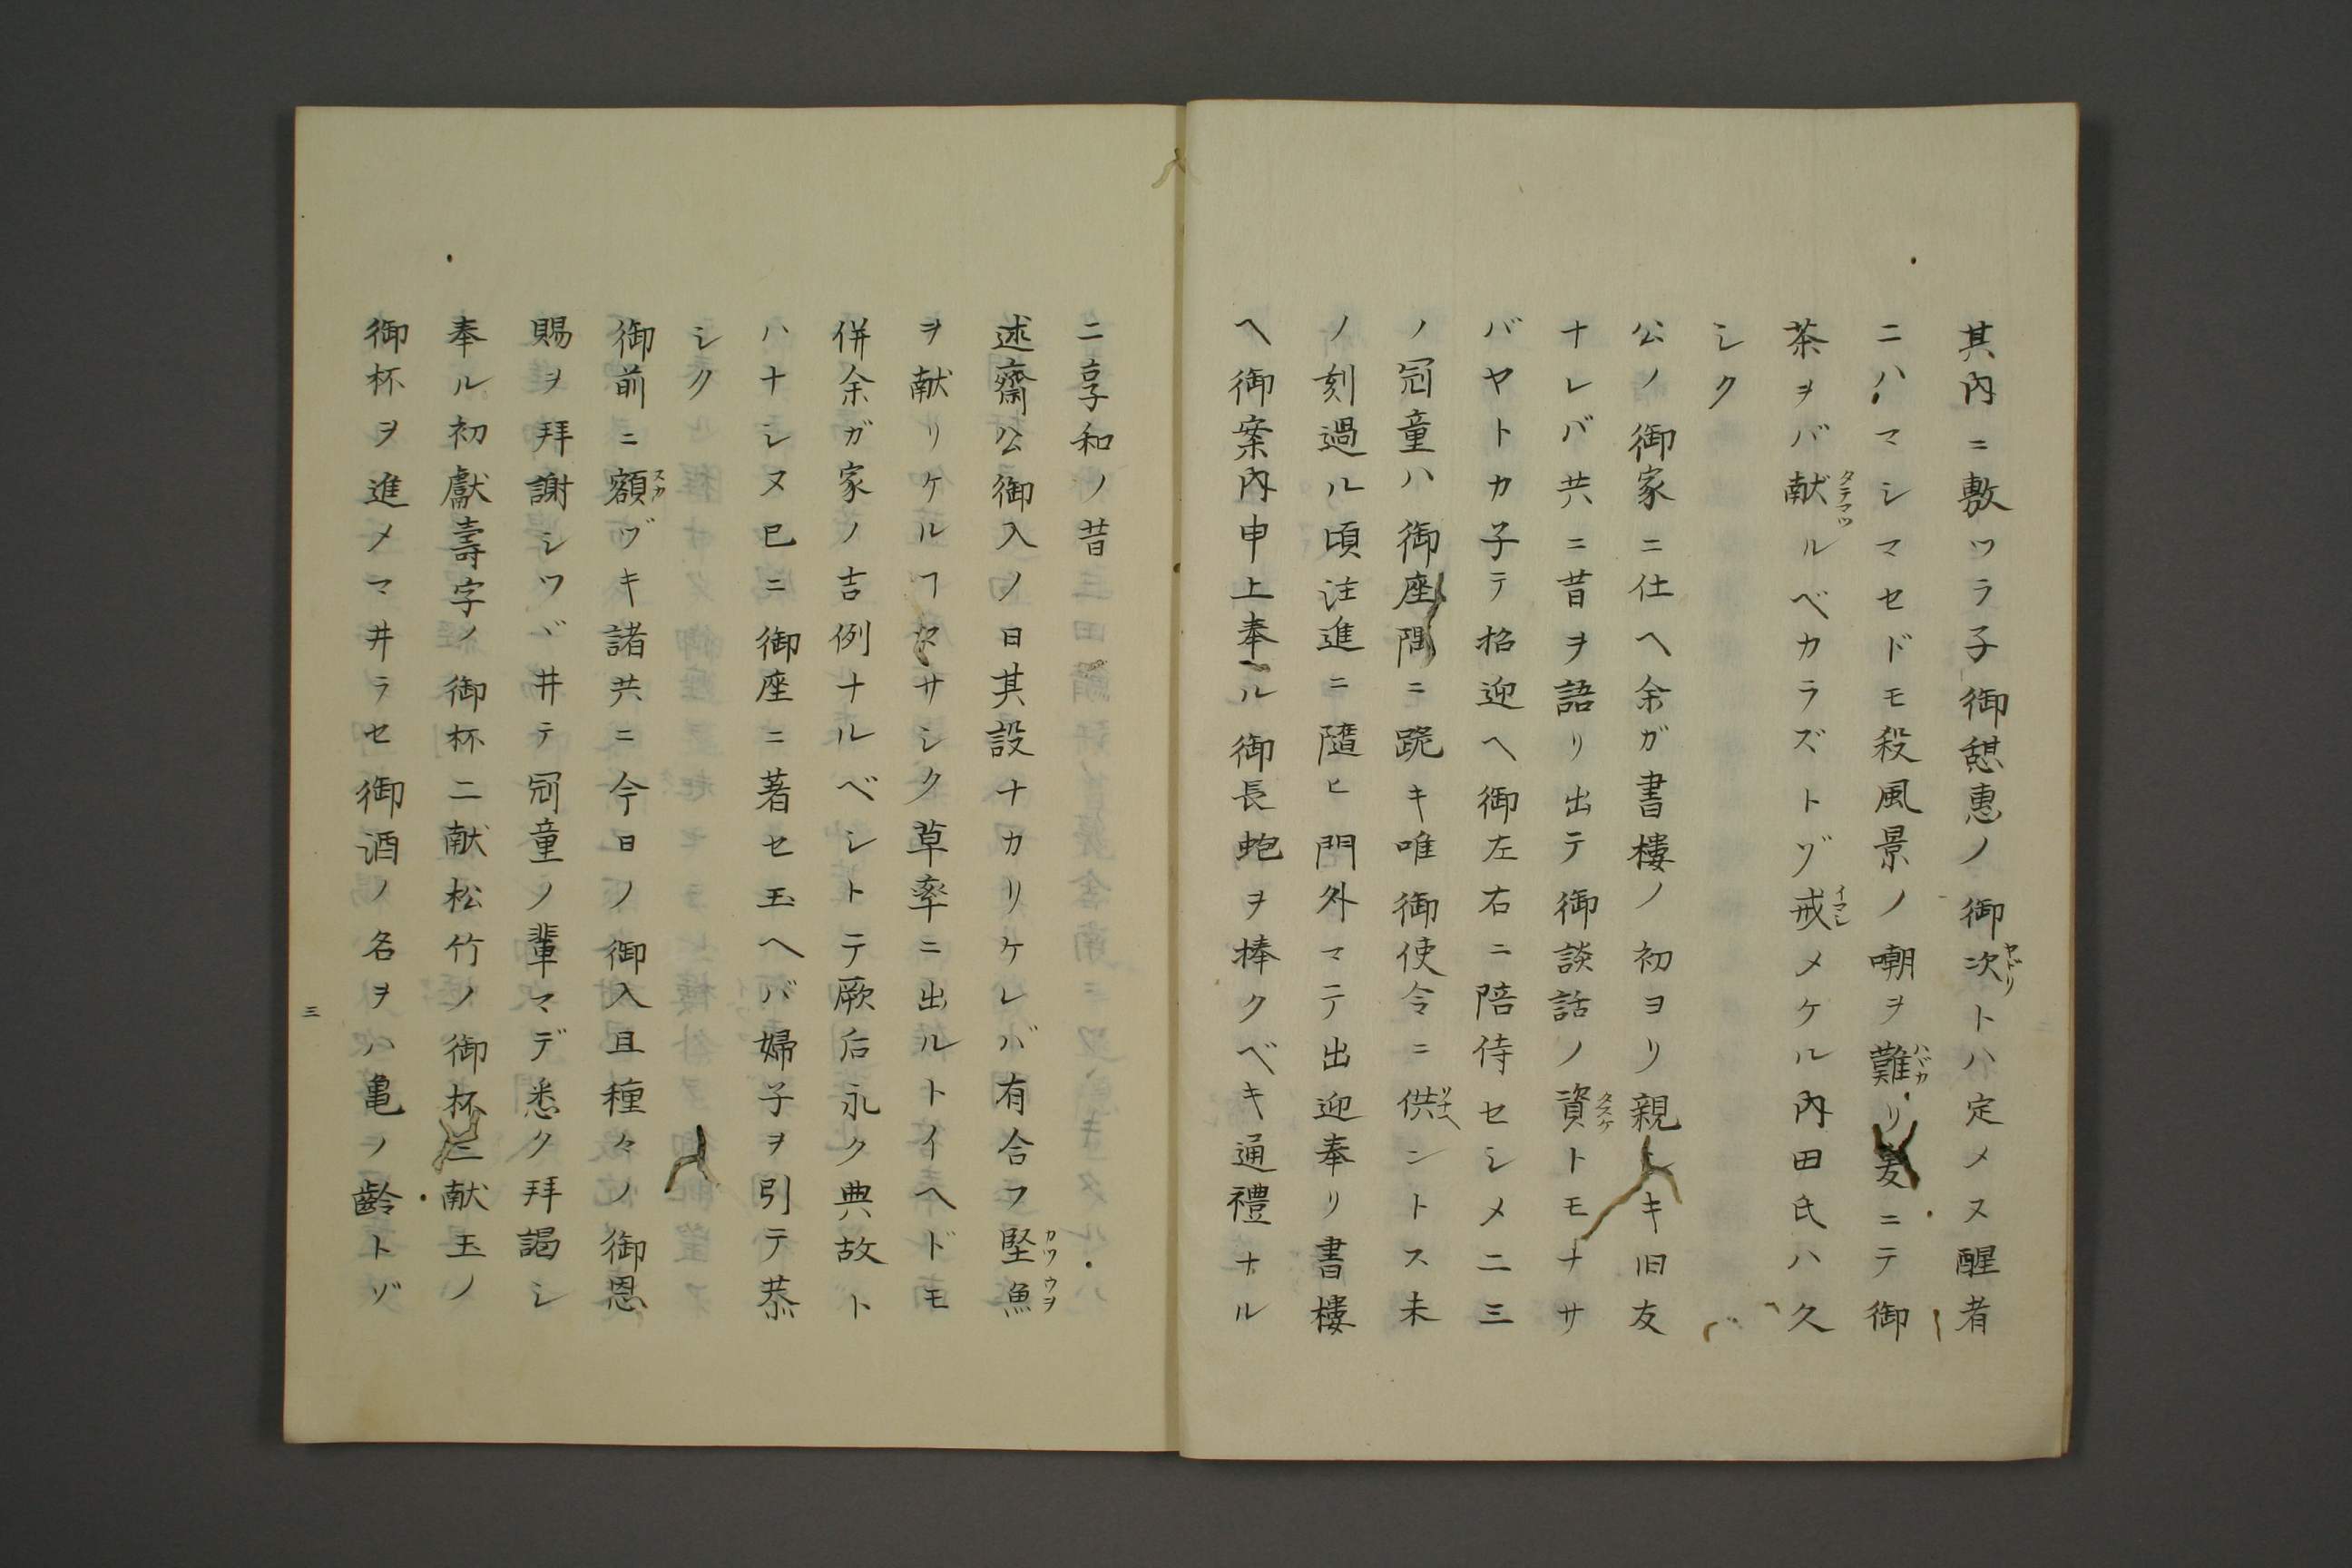 其内ニ敷ツラ子御憩惠ノ御次トハ定メヌ醒者
ニハマシマセドモ殺風景ノ嘲ヲ難リ爰ニテ御
茶ヲバ献ルベカラズトゾ戒メケル内田氏ハ久
シク
公ノ御家ニ仕ヘ余ガ書樓ノ初ヨリ親シキ旧友
ナレバ共ニ昔ヲ語リ出テ御談話ノ資トモナサ
バヤトカ子テ招迎ヘ御左右ニ陪侍セシメ二三
ノ冠童ハ御座隅ニモ跪キ唯御使令ニ供ントス未
ノ刻過ル頃注進ニ隨ヒ門外マテ出迎奉リ書樓
ヘ御案内申上奉ル御長蚫ヲ捧クベキ通禮ナル
ニ享和ノ昔
述齋公御入ノ日其設ナカリケレバ有合フ堅魚
ヲ献リケルヿヤサシク草率ニ出ルトイヘドモ
併余ガ家ノ吉例ナルベシトテ厥后永ク典故ト
ハナシヌ已ニ御座ニ著セ玉ヘバ婦子ヲ引テ恭
シク
御前ニ額ヅキ諸共ニ今日ノ御入且種々ノ御恩
賜ヲ拜謝シツヾ井テ冠童ノ輩マデ悉ク拜謁シ
奉ル初獻壽字ノ御杯二献松竹ノ御杯三献玉ノ
御杯ヲ進メマ井ラセ御酒ノ名ヲハ亀ノ齡トゾ
三